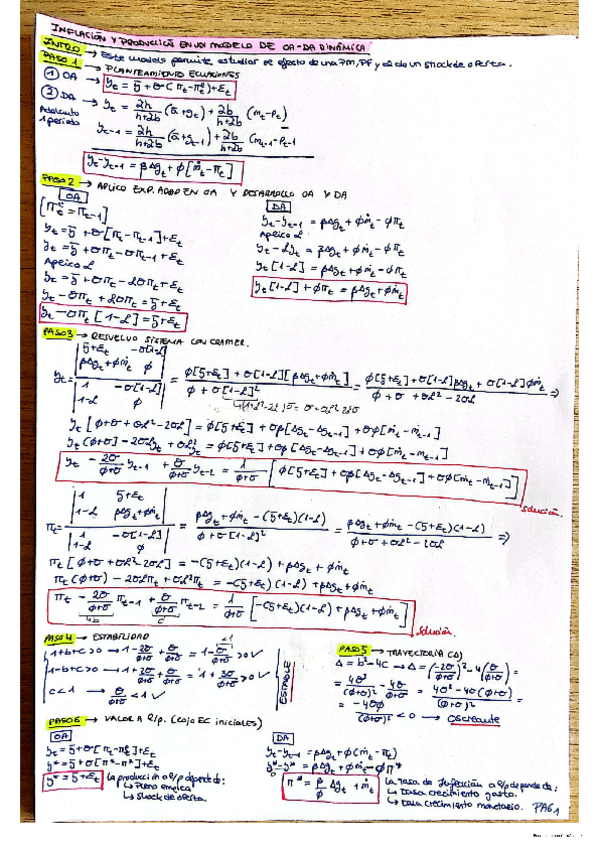 INFLACIÓN Y PRODUCCIÓN EN UN MODELO DE OA-DA DINÁMICA
INTRO → Este modelo permite estudiar el efecto de una PM, PF y el de un shock de oferta.
PASO 1 → PLANTEAMIENTO ECUACIONES
① OA → y_t = ȳ + σ(π_t - π_t^e) + ε_t
② DA → y_t = 2h/(h+2b) (ā + g_t) + 2b/(h+2b) (m_t - p_t)
Adelanto 1 periodo
y_t-1 = 2h/(h+2b) (ā + g_t-1) + 2b/(h+2b) (m_t-1 - p_t-1
y_t - y_t-1 = βΔg_t + φ[ṁ_t - π_t]
PASO 2 → APLICO EXP. ADAP EN OA Y DESARROLLO OA Y DA
OA
[π_t^e = π_t-1]
y_t = ȳ + σ[π_t - π_t-1] + ε_t
y_t = ȳ + σπ_t - σπ_t-1 + ε_t
Aplico L
y_t = ȳ + σπ_t - Lσπ_t + ε_t
y_t - σπ_t + Lσπ_t = ȳ + ε_t
y_t - σπ_t [1-L] = ȳ + ε_t
DA
y_t - y_t-1 = βΔg_t + φṁ_t - φπ_t
Aplico L
y_t - Ly_t = βΔg_t + φṁ_t - φπ_t
y_t [1-L] = βΔg_t + φṁ_t - φπ_t
y_t [1-L] + φπ_t = βΔg_t + φṁ_t
PASO 3 → RESUELVO SISTEMA CON CRAMER.
y_t = |ȳ+ε_t -σ[1-L] ; βΔg_t+φṁ_t φ| / |1 -σ[1-L] ; 1-L φ| = (φ[ȳ+ε_t] + σ[1-L][βΔg_t + φṁ_t]) / (φ + σ[1-L]²) = (φ[ȳ+ε_t] + σ[1-L]βΔg_t + σ[1-L]φṁ_t) / (φ + σ + σL² - 2σL) ⇒
↳ (1+L²-2L)σ = σ+σL²-2σL
y_t [φ+σ + σL² - 2σL] = φ[ȳ+ε_t] + σβ[Δg_t - Δg_t-1] + σφ[ṁ_t - ṁ_t-1]
y_t (φ+σ) - 2σLy_t + σL²y_t = φ[ȳ+ε_t] + σβ[Δg_t - Δg_t-1] + σφ[ṁ_t - ṁ_t-1]
y_t - 2σ/(φ+σ) y_t-1 + σ/(φ+σ) y_t-2 = 1/(φ+σ) [φ[ȳ+ε_t] + σβ[Δg_t - Δg_t-1] + σφ[ṁ_t - ṁ_t-1]]
solución.
π_t = |1 ȳ+ε_t ; 1-L βΔg_t+φṁ_t| / |1 -σ[1-L] ; 1-L φ| = (βΔg_t + φṁ_t - (ȳ+ε_t)(1-L)) / (φ + σ[1-L]²) = (βΔg_t + φṁ_t - (ȳ+ε_t)(1-L)) / (φ + σ + σL² - 2σL) ⇒
π_t [φ+σ + σL² - 2σL] = -(ȳ+ε_t)(1-L) + βΔg_t + φṁ_t
π_t (φ+σ) - 2σLπ_t + σL²π_t = -(ȳ+ε_t)(1-L) + βΔg_t + φṁ_t
π_t - 2σ/(φ+σ) π_t-1 + σ/(φ+σ) π_t-2 = 1/(φ+σ) [-(ȳ+ε_t)(1-L) + βΔg_t + φṁ_t]
solución.
PASO 4 → ESTABILIDAD
1+b+c>0 → 1 - 2σ/(φ+σ) + σ/(φ+σ) = 1 - σ/(φ+σ) > 0 ✓
1-b+c>0 → 1 + 2σ/(φ+σ) + σ/(φ+σ) = 1 + 3σ/(φ+σ) > 0 ✓
c<1 → σ/(φ+σ) < 1 ✓
ESTABLE
PASO 5 → TRAYECTORIA (Δ)
Δ = b² - 4c → Δ = (-2σ/(φ+σ))² - 4(σ/(φ+σ)) =
= 4σ²/(φ+σ)² - 4σ/(φ+σ) = (4σ² - 4σ(φ+σ))/(φ+σ)² =
= -4σφ/(φ+σ)² < 0 → oscilante
PASO 6 → VALOR A l/p. (cojo EC iniciales)
OA
y_t = ȳ + σ[π_t - π_t^e] + ε_t
y* = ȳ + σ[π* - π*] + ε_t
y* = ȳ + ε_t
la producción a l/p depende:
↳ Pleno empleo
↳ shock de oferta.
DA
y_t - y_t-1 = βΔg_t + φ(ṁ_t - π_t)
y* - y* = βΔg_t + φṁ_t - φπ*
0
π* = β/φ Δg_t + ṁ_t
la tasa de inflación a l/p depende de:
↳ Tasa crecimiento gasto.
↳ tasa crecimiento monetario.
PAG 1